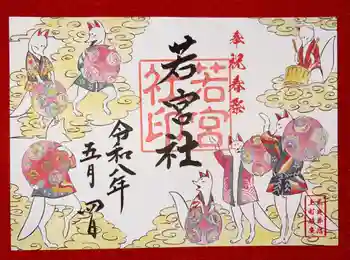 奉祝春祭
若宮社
若宮
社印
令和八年
五月四日